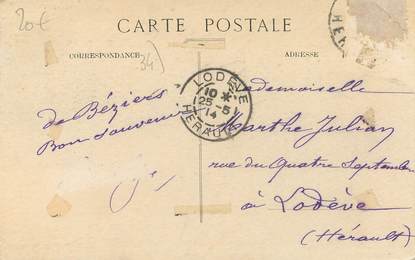 20€
CARTE POSTALE
CORRESPONDANCE
ADRESSE
34)
HER
LODÈVE
10 *
25-5
14
HERAULT
de Béziers
Bon souvenir
Mademoiselle
Marthe Julian
rue du Quatre Septembre
à Lodève
(Hérault)